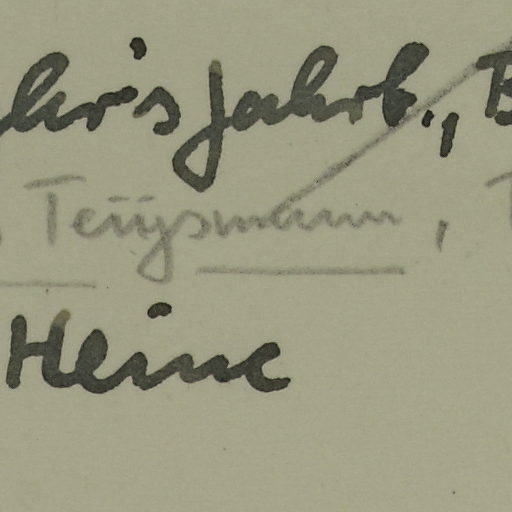 ahrs Jahrb., B
, Teijsmann, T
Heine